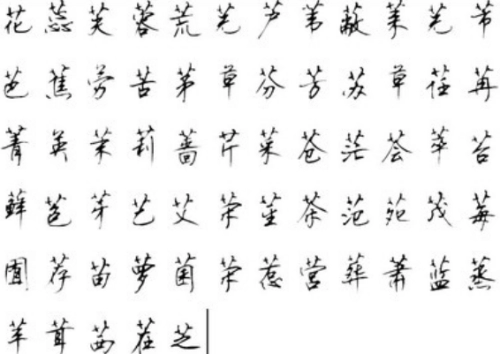 花蕊芙蓉荒芜芦苇蔽莱芜芾
芭蕉劳苦茅草芬芳苏草荏苒
菁英茉莉蔷芹菜苍茫荟萃苔
藓苞芽艺艾荣莹茶范苑茂莓
荐苗萝菌荣葱营葬萧蓝蒸
羊茸茜茬芝